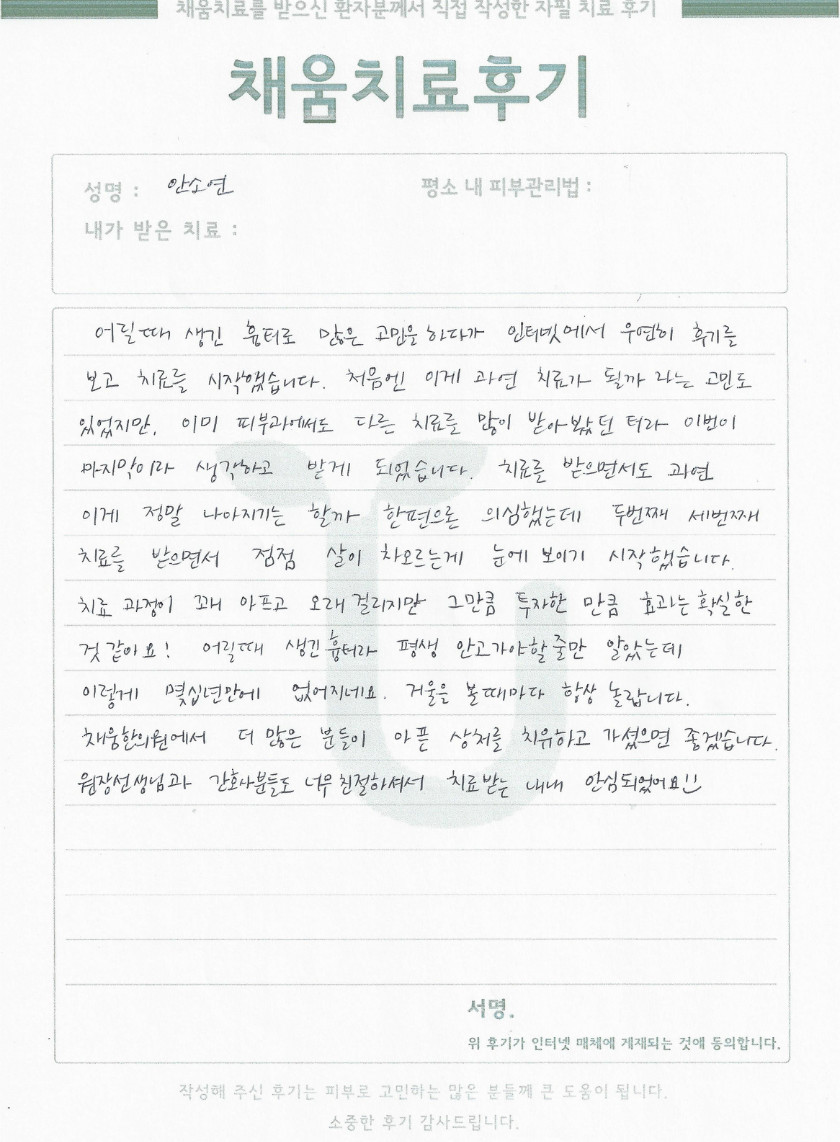 채움치료를 받으신 환자분께서 직접 작성한 자필 치료 후기
채움치료후기
성명 : 안소연
평소 내 피부관리법 :
내가 받은 치료 :
어릴때 생긴 흉터로 많은 고민을 하다가 인터넷에서 우연히 후기를
보고 치료를 시작했습니다. 처음엔 이게 과연 치료가 될까 라는 고민도
있었지만, 이미 피부과에서도 다른 치료를 많이 받아봤던 터라 이번이
마지막이라 생각하고 받게 되었습니다. 치료를 받으면서도 과연
이게 정말 나아지기는 할까 한편으론 의심했는데 두번째 세번째
치료를 받으면서 점점 살이 차오르는게 눈에 보이기 시작했습니다.
치료 과정이 꽤 아프고 오래걸리지만 그만큼 투자한 만큼 효과는 확실한
것 같아요! 어릴때 생긴 흉터라 평생 안고가야할 줄만 알았는데
이렇게 몇십년만에 없어지네요. 거울을 볼때마다 항상 놀랍니다.
채움한의원에서 더 많은 분들이 아픈 상처를 치유하고 가셨으면 좋겠습니다.
원장선생님과 간호사분들도 너무 친절하셔서 치료받는 내내 안심되었어요!!
서명.
위 후기가 인터넷 매체에 게재되는 것에 동의합니다.
작성해 주신 후기는 피부로 고민하는 많은 분들께 큰 도움이 됩니다.
소중한 후기 감사드립니다.